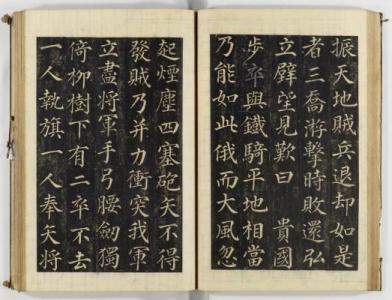 振天地賊兵退却如是
者三喬游擊時敗還弘
立壁望見歎曰　貴國
步卒與鐵騎平地相當
乃能如此俄而大風忽
起煙塵四塞砲矢不得
發賊乃并力衝突我軍
立盡將軍手弓腰劒獨
倚柳樹下有二卒不去
一人執旗一人奉矢將